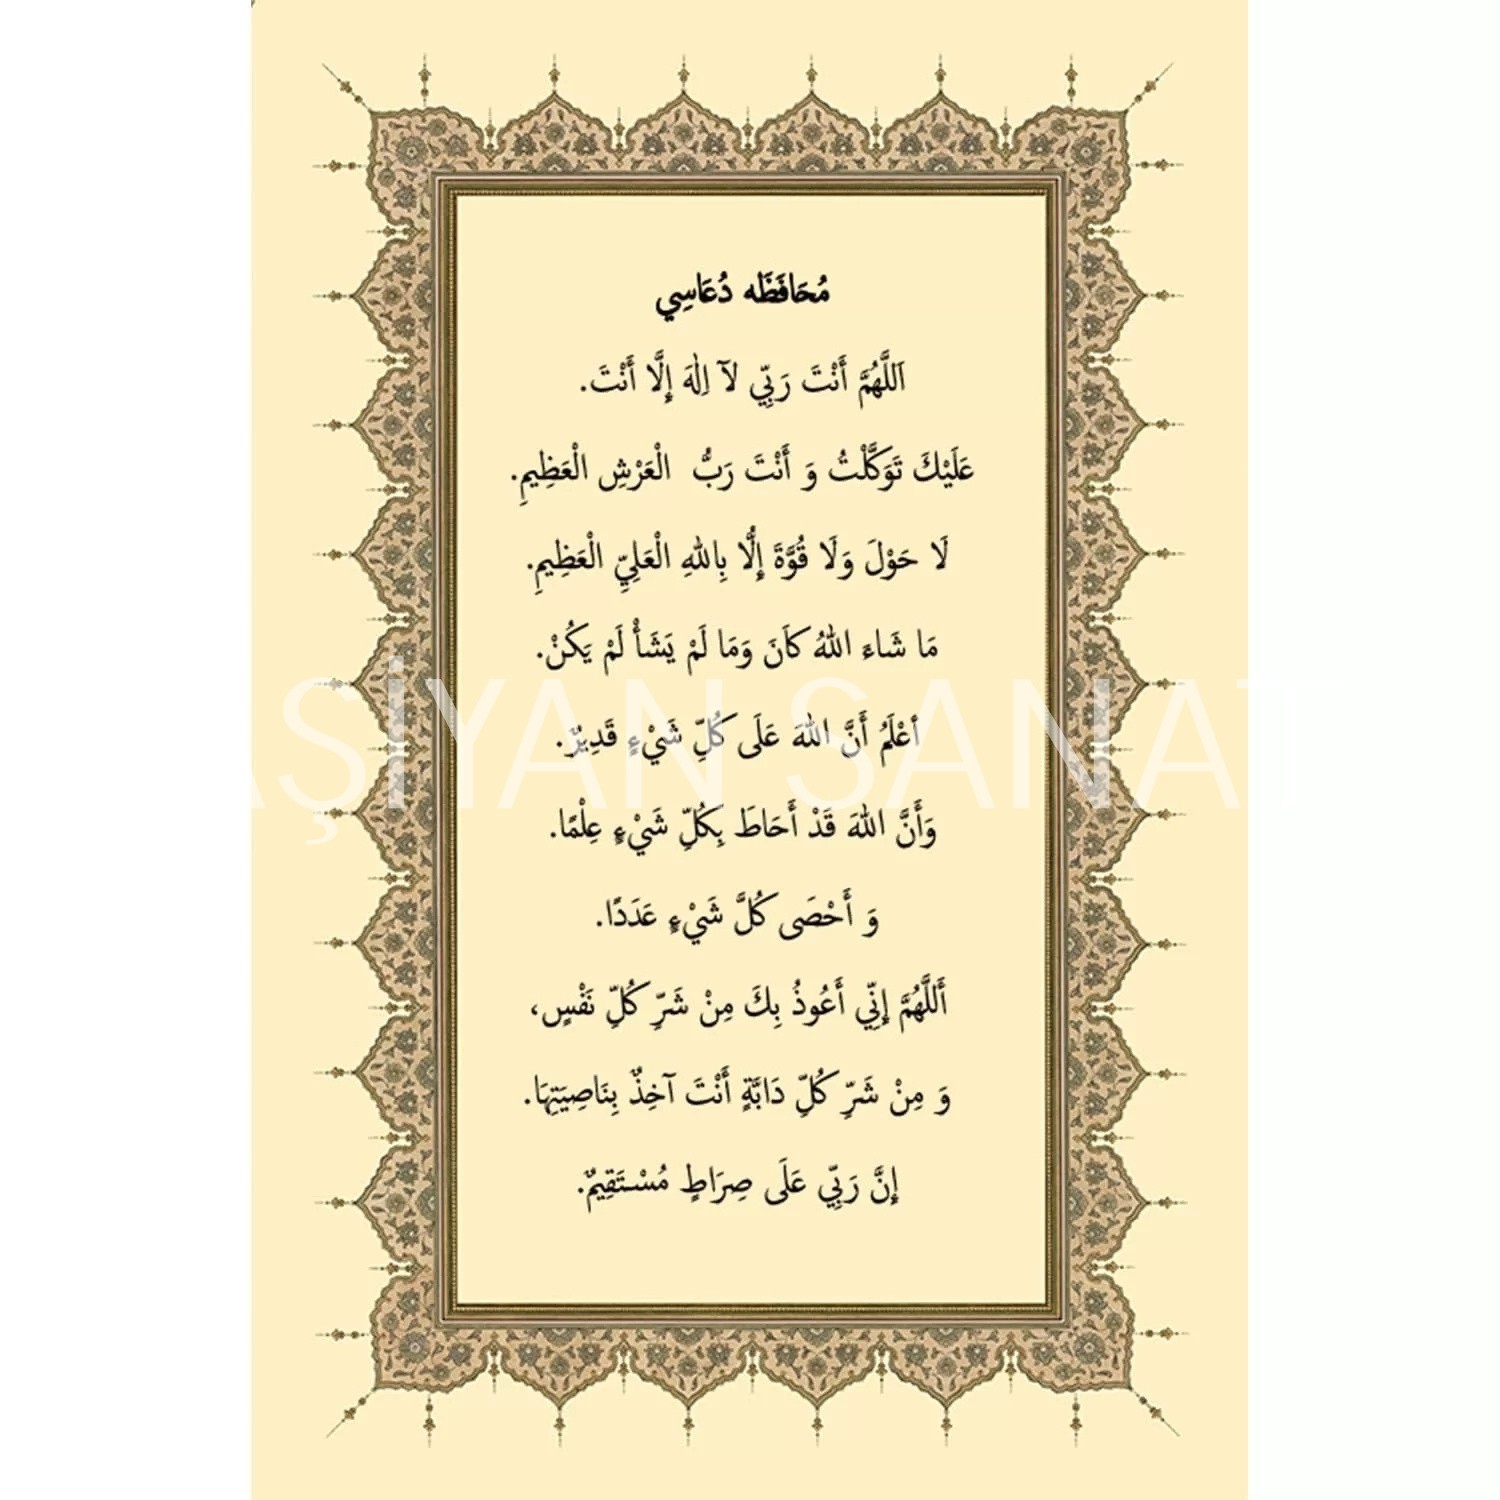 مُحَافَظَه دُعَاسِي
اَللَّهُمَّ أَنْتَ رَبِّي لآَ اِلٰهَ إِلَّا أَنْتَ.
عَلَيْكَ تَوَكَّلْتُ وَ أَنْتَ رَبُّ الْعَرْشِ الْعَظِيمِ.
لَا حَوْلَ وَلَا قُوَّةَ إِلَّا بِاللهِ الْعَلِيِّ الْعَظِيمِ.
مَا شَاءَ اللهُ كَانَ وَمَا لَمْ يَشَأْ لَمْ يَكُنْ.
أعْلَمُ أَنَّ اللهَ عَلَى كُلِّ شَيْءٍ قَدِيرٌ.
AŞİYAN SANAT
وَأَنَّ اللهَ قَدْ أَحَاطَ بِكُلِّ شَيْءٍ عِلْمًا.
وَ أَحْصَى كُلَّ شَيْءٍ عَدَدًا.
أَللَّهُمَّ إِنِّي أَعُوذُ بِكَ مِنْ شَرِّ كُلِّ نَفْسٍ،
وَ مِنْ شَرِّ كُلِّ دَابَّةٍ أَنْتَ آخِذٌ بِنَاصِيَتِهَا.
إِنَّ رَبِّي عَلَى صِرَاطٍ مُسْتَقِيمٌ.